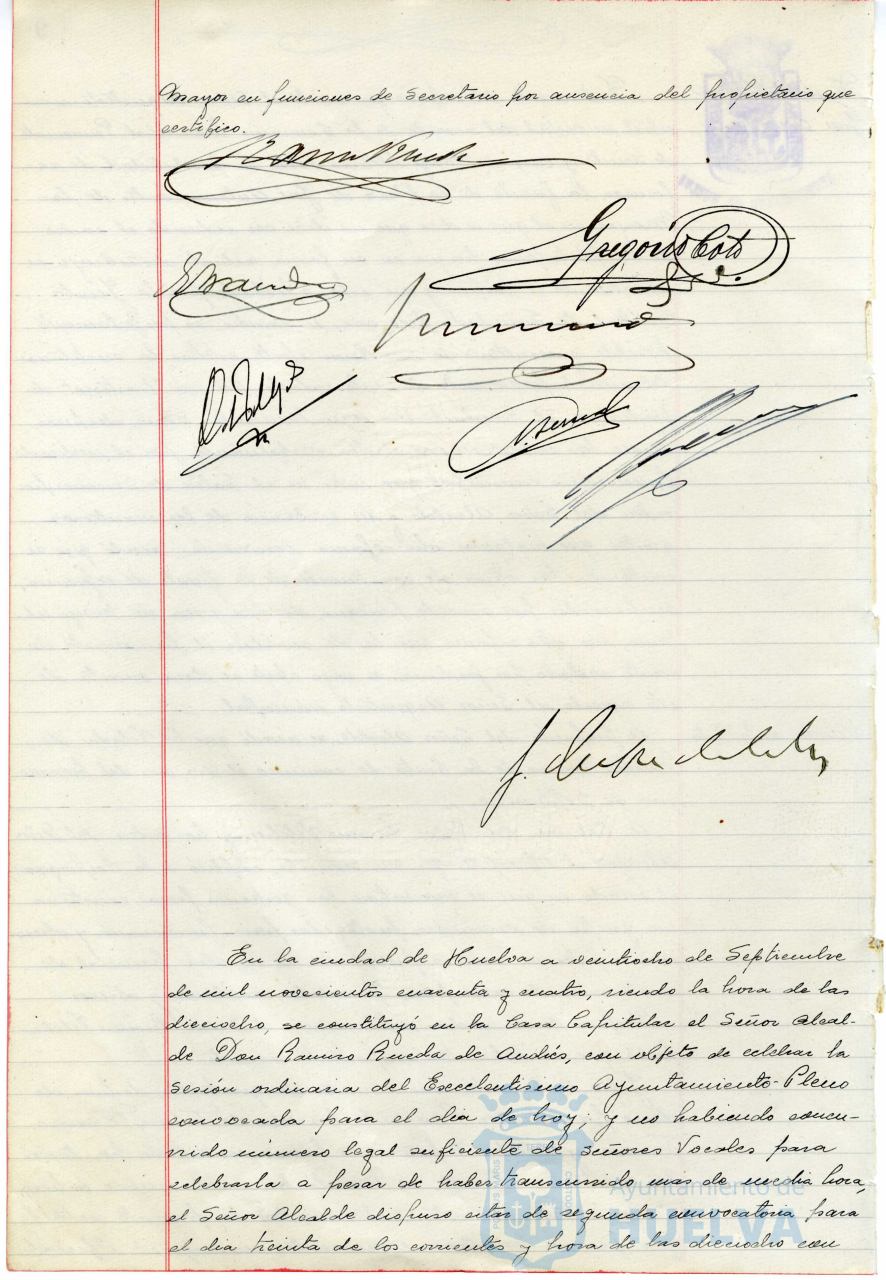 Mayor en funciones de Secretario por ausencia del propietario que
certifico.
Gregorio Coto
En la ciudad de Huelva a veintiocho de Septiembre
de mil novecientos cuarenta y cuatro, siendo la hora de las
dieciocho, se constituyó en la Casa Capitular el Señor Alcal-
de Don Ramiro Rueda de Andrés, con objeto de celebrar la
sesión ordinaria del Excelentísimo Ayuntamiento-Pleno
convocada para el dia de hoy; y no habiendo concu-
rrido número legal suficiente de señores Vocales para
celebrarla a pesar de haber transcurrido mas de media hora,
el Señor Alcalde dispuso citar de segunda convocatoria para
el dia treinta de los corrientes y hora de las dieciocho con
Ayuntamiento de
HUELVA